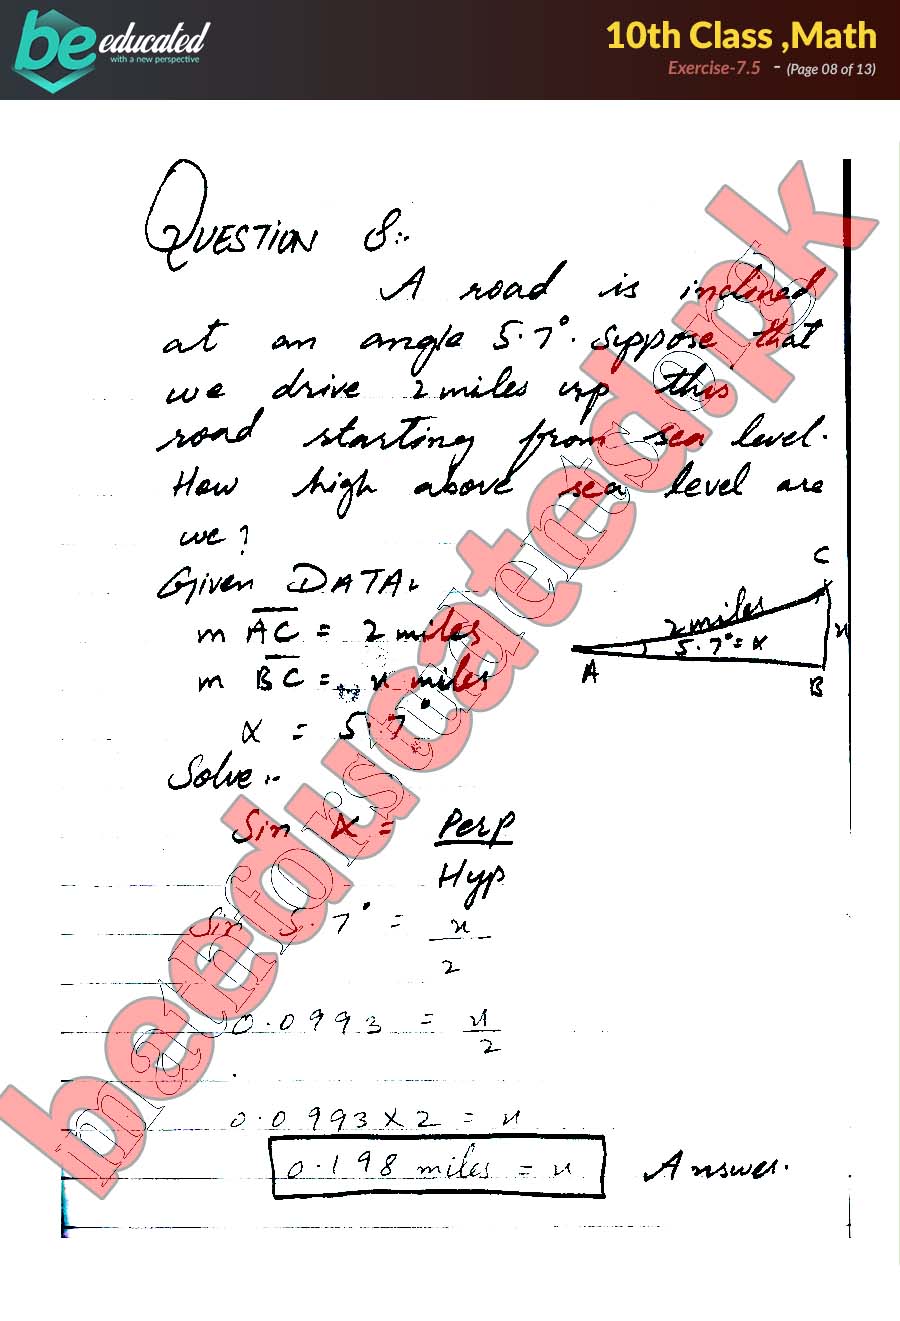 be educated
with a new perspective
10th Class ,Math
Exercise-7.5 - (Page 08 of 13)
QUESTION 8:-
A road is inclined
at an angle 5.7°. Suppose that
we drive 2 miles up this
road starting from sea level.
How high above sea level are
we?
Given DATA:
m AC = 2 miles
m BC = x miles
α = 5.7°
C
2 miles
x
5.7° = α
A
B
Solve:-
Sin α = Perp
Hyp
Sin 5.7° = x
2
0.0993 = x
2
0.0993 × 2 = x
0.198 miles = x Answer.
beeducated.pk